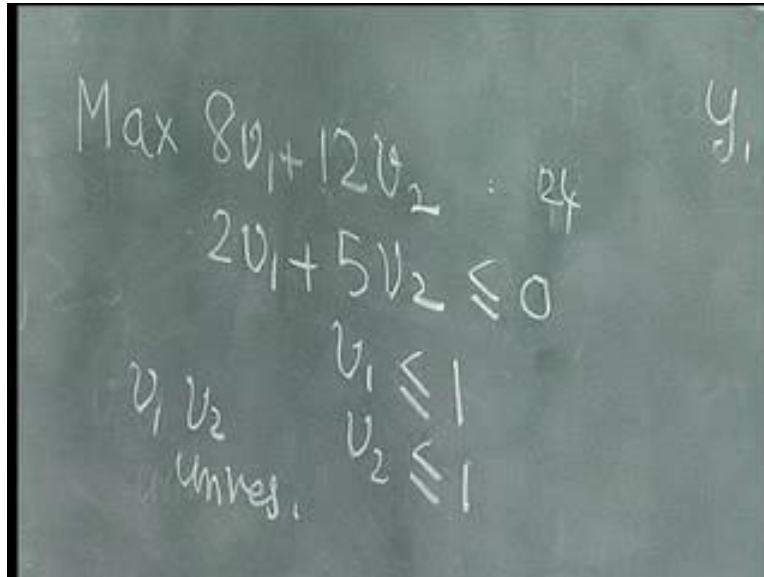 Max 8v₁+12v₂ : 24
y₁
2v₁+5v₂ ≤ 0
v₁ ≤ 1
v₁ v₂
v₂ ≤ 1
unres.